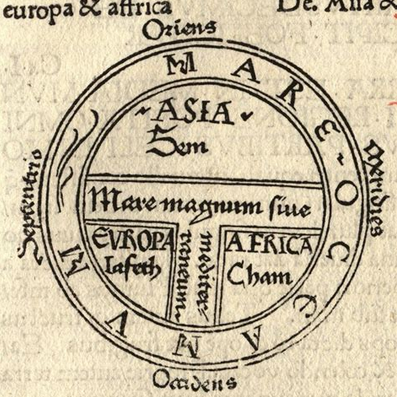 europa & affrica
De. Asia &
Oriens
MARE OCCEANVM
ASIA
Sem
Septentrio
Meridies
Mare magnum siue
mediter
raneum
EVROPA
Iafeth
AFRICA
Cham
Occidens